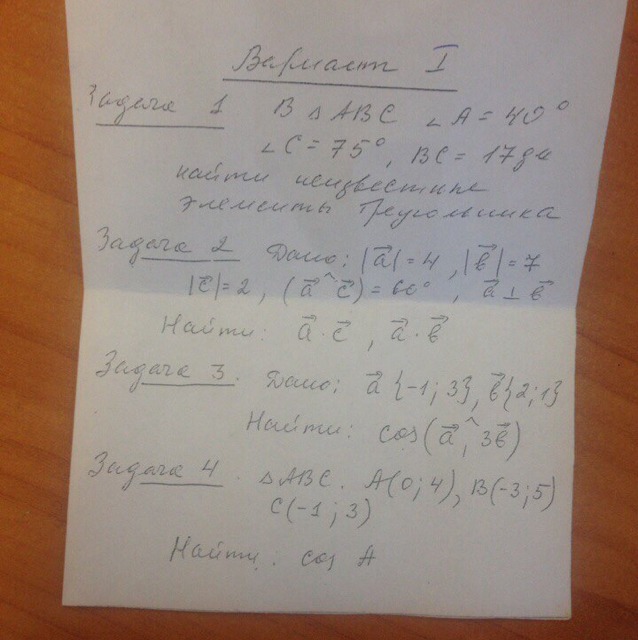 Вариант I
Задача 1 В △ABC ∠A = 40°
∠C = 75°, BC = 17дм
найти неизвестные
элементы треугольника
Задача 2 Дано: |a⃗| = 4, |b⃗| = 7
|c⃗| = 2, (a⃗ ^ c⃗) = 60°, a⃗ ⊥ b⃗
Найти: a⃗ · c⃗, a⃗ · b⃗
Задача 3. Дано: a⃗ {-1; 3}, b⃗ {2; 1}
Найти: cos(a⃗ ^, 3b⃗)
Задача 4. △ABC. A(0; 4), B(-3; 5)
C(-1; 3)
Найти: cos A